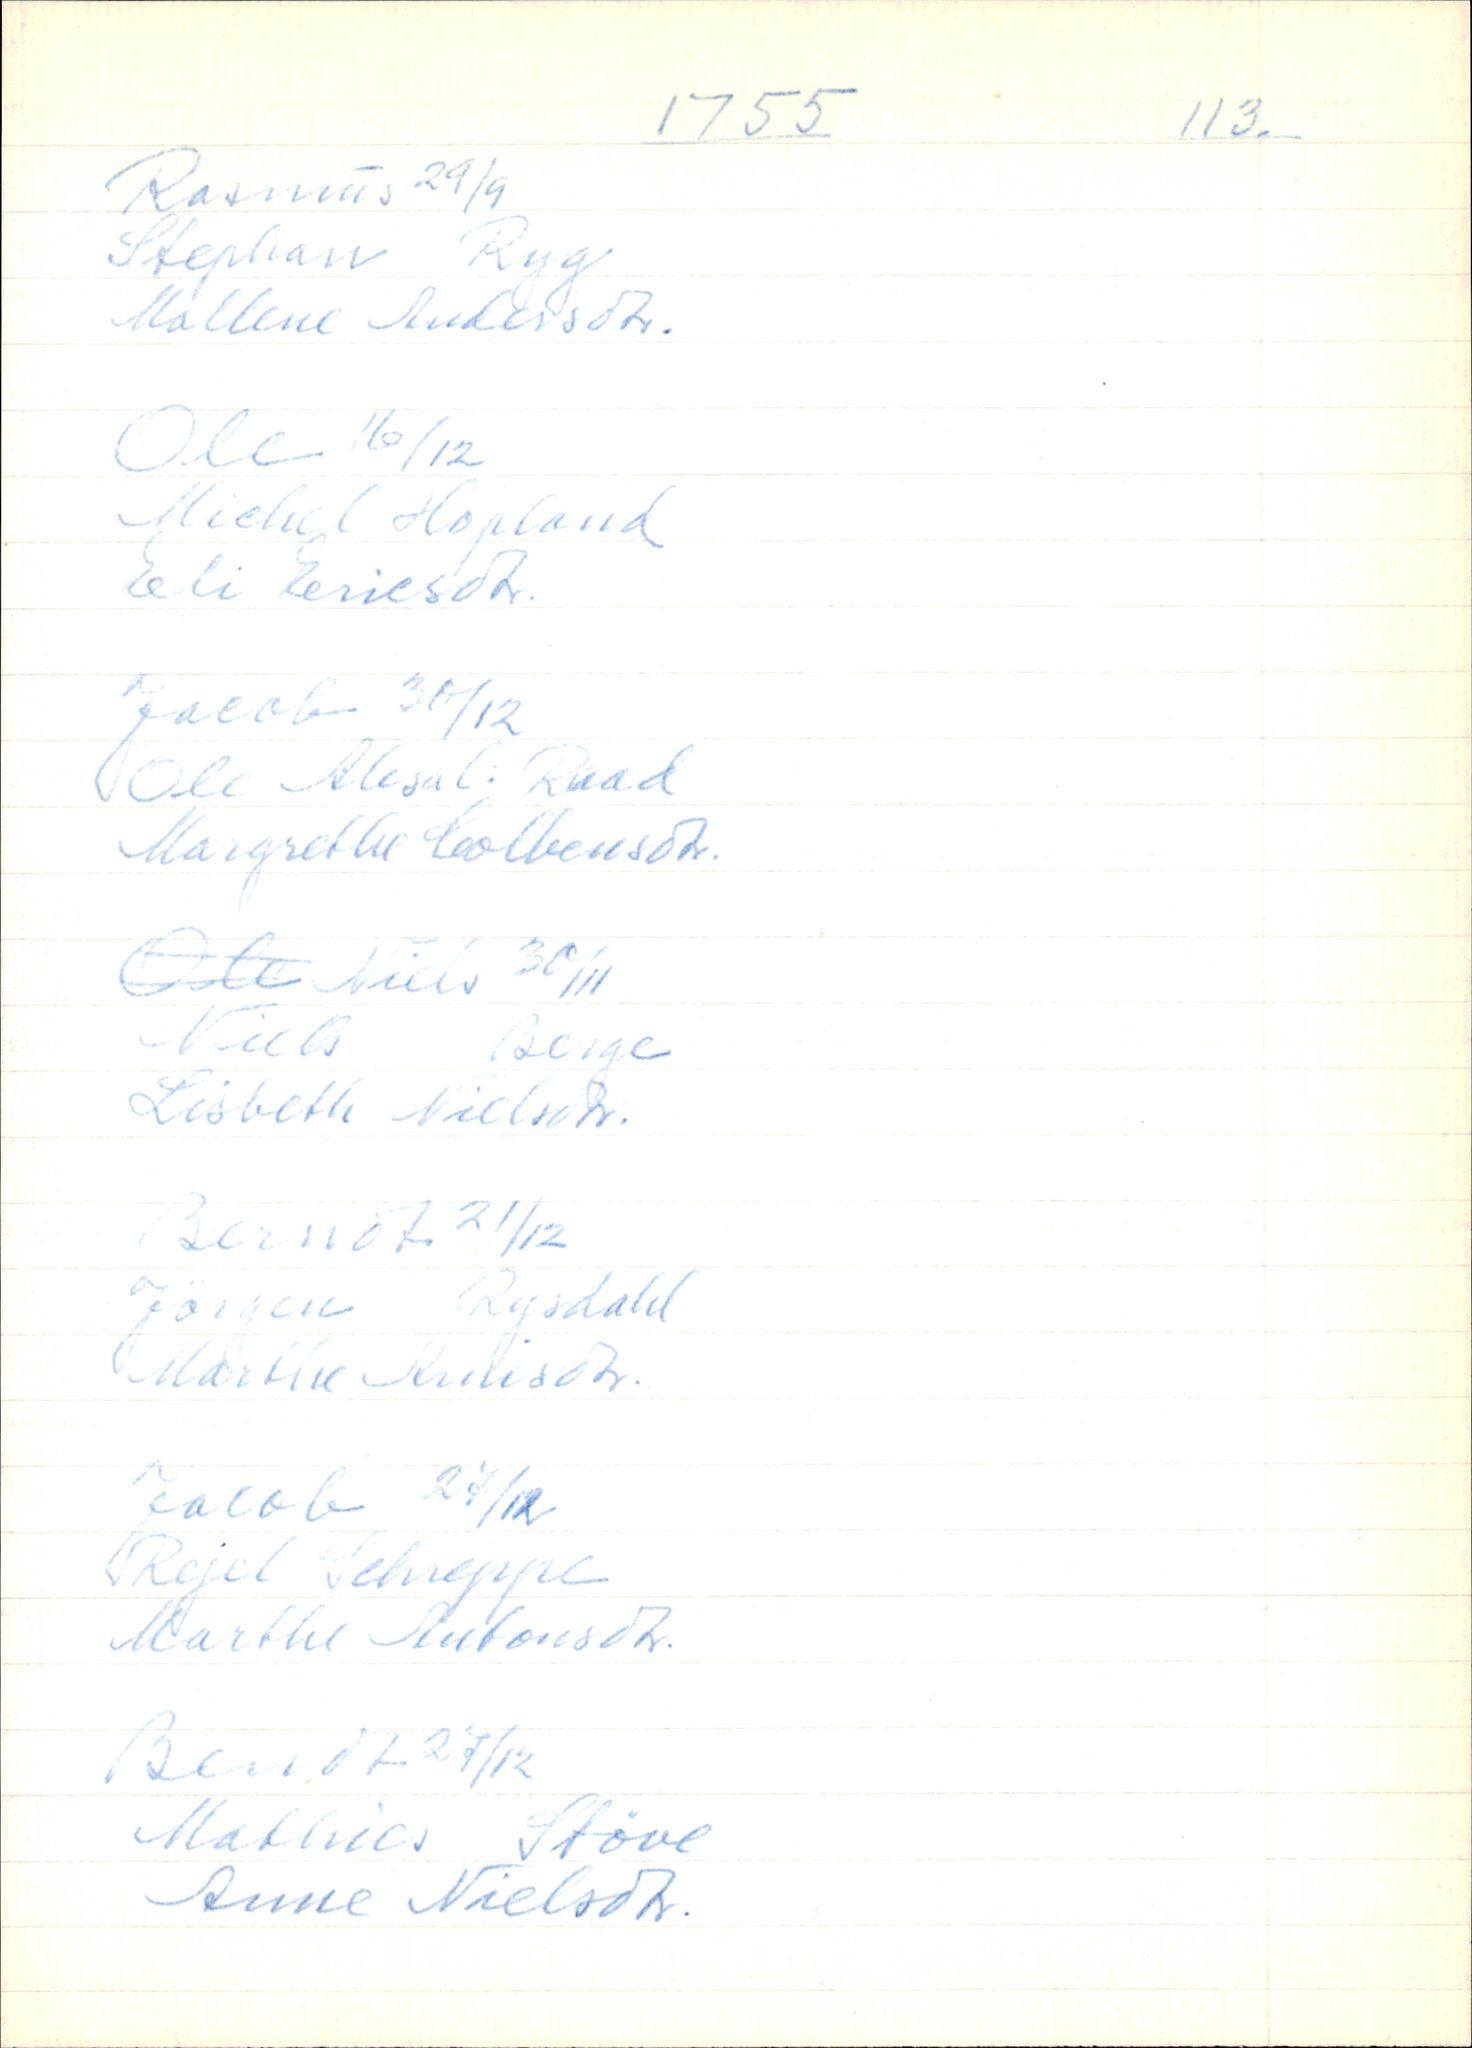 1755
113.
Rasmus 29/9
Stephan Ryg
Mallene Andersdtr.
Ole 16/12
Michel Hopland
Eli Ericsdtr.
Jacob 30/12
Ole Raad
Margrethe Colbensdtr.
Ole Niels 30/11
Niels Berge
Lisbeth Nielsdtr.
Berndt 21/12
Jörgen Rysdahl
Marthe
Jacob 27/12
Rejel Schreppe
Marthe Antonsdtr.
Bendt 27/12
Mathies Stöve
Anne Nielsdtr.